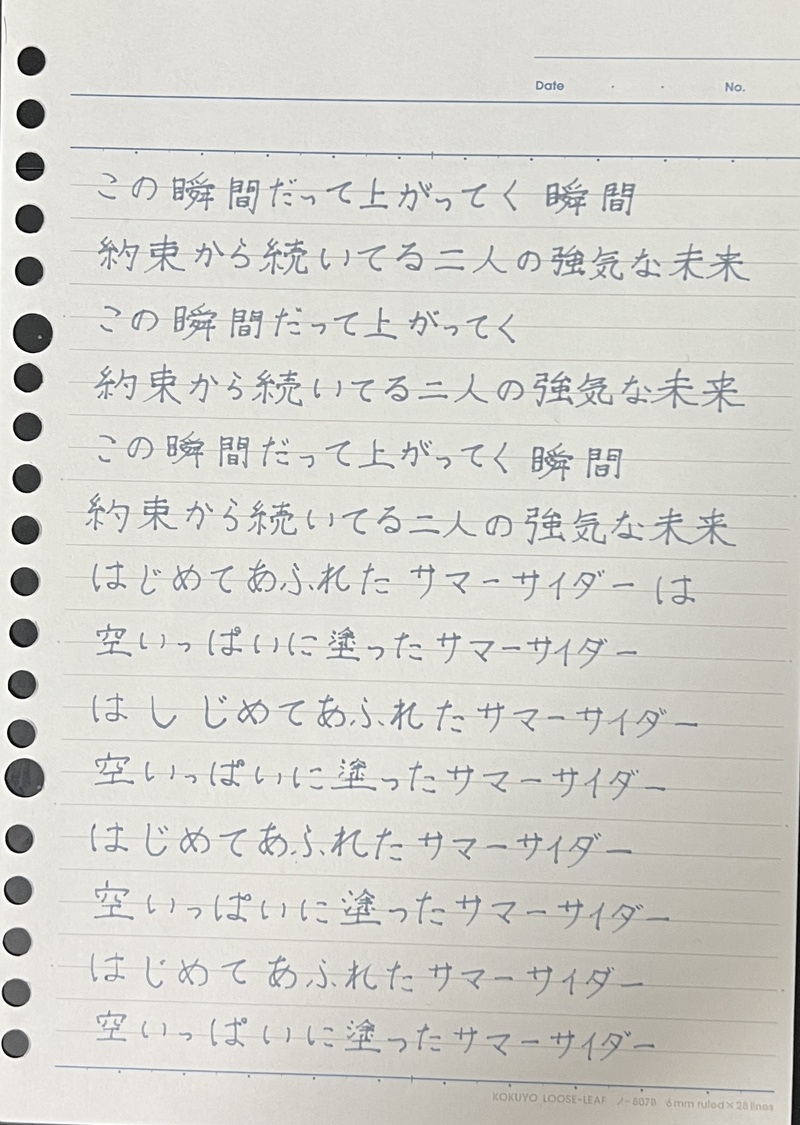 Date ・ ・ No.
この瞬間だって上がってく 瞬間
約束から続いてる二人の強気な未来
この瞬間だって上がってく
約束から続いてる二人の強気な未来
この瞬間だって上がってく 瞬間
約束から続いてる二人の強気な未来
はじめてあふれた サマーサイダー は
空いっぱいに塗ったサマーサイダー
は し じめてあふれた サマーサイダー
空いっぱいに塗ったサマーサイダー
はじめてあふれた サマーサイダー
空いっぱいに塗ったサマーサイダー
はじめて あふれたサマーサイダー
空いっぱいに塗ったサマーサイダー
KOKUYO LOOSE-LEAF ノ-807B 6mm ruled×28 lines